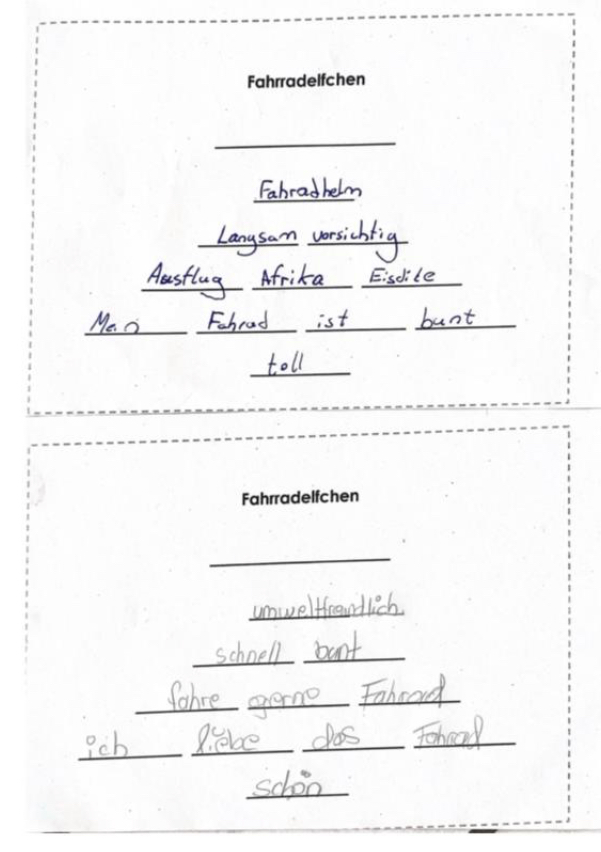 Fahrradelfchen
Fahradhelm
Langsam vorsichtig
Ausflug Afrika Eisdile
Fahrad ist bunt
toll
Fahrradelfchen
umweltfreundlich
schnell bunt
fahre gerne Fahrrad
ich liebe das Fahrrad
schön